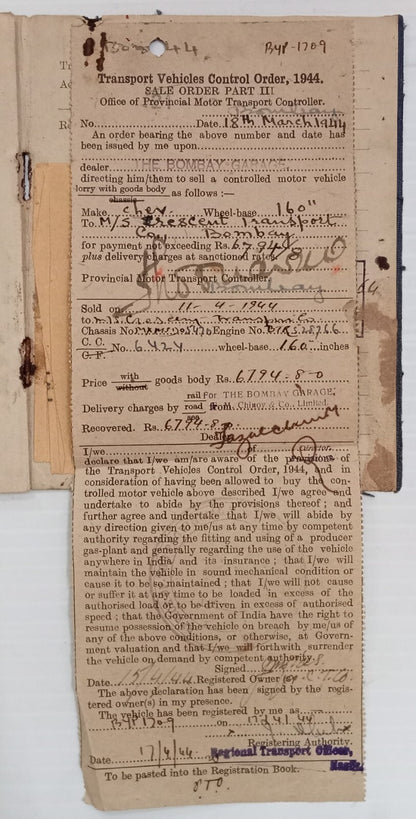 Bom 44 BYP-1709
Transport Vehicles Control Order, 1944.
SALE ORDER PART III
Office of Provincial Motor Transport Controller.
Bombay
No. Date 18th March 1944
An order bearing the above number and date has
been issued by me upon
dealer THE BOMBAY GARAGE,
directing him/them to sell a controlled motor vehicle
lorry with goods body as follows :—
chassis
Make Chev. Wheel-base 160"
To M/S Crescent Transport
Co., Bombay
for payment not exceeding Rs. 6794/8
plus delivery charges at sanctioned rates.
Provincial Motor Transport Controller
Bombay
Sold on 11-4-1944
to M/s Crescent Transport Co
Chassis No. Engine No.
C. C. No. 6424 wheel-base 160 inches
G. F.
Price with goods body Rs. 6794-8-0
without
rail For THE BOMBAY GARAGE,
Delivery charges by road from Chinoy & Co., Limited.
Recovered. Rs. 6794-8
Dealer
Director.
I/we of
declare that I/we am/are aware of the provisions of
the Transport Vehicles Control Order, 1944, and in
consideration of having been allowed to buy the con-
trolled motor vehicle above described I/we agree and
undertake to abide by the provisions thereof ; and
further agree and undertake that I/we will abide by
any direction given to me/us at any time by competent
authority regarding the fitting and using of a producer
gas-plant and generally regarding the use of the vehicle
anywhere in India and its insurance ; that I/we will
maintain the vehicle in sound mechanical condition or
cause it to be so maintained ; that I/we will not cause
or suffer it at any time to be loaded in excess of the
authorised load or to be driven in excess of authorised
speed ; that the Government of India have the right to
resume possession of the vehicle on breach by me/us of
any of the above conditions, or otherwise, at Govern-
ment valuation and that I/we will forthwith surrender
the vehicle on demand by competent authority.
Signed
Date 15/4/44 Registered Owner
The above declaration has been signed by the regis-
tered owner(s) in my presence.
The vehicle has been registered by me as
BYP 1709 on 17/4/44
Registering Authority.
Date 17/4/44 Regional Transport Officer,
Nasik.
To be pasted into the Registration Book.
P.T.O.